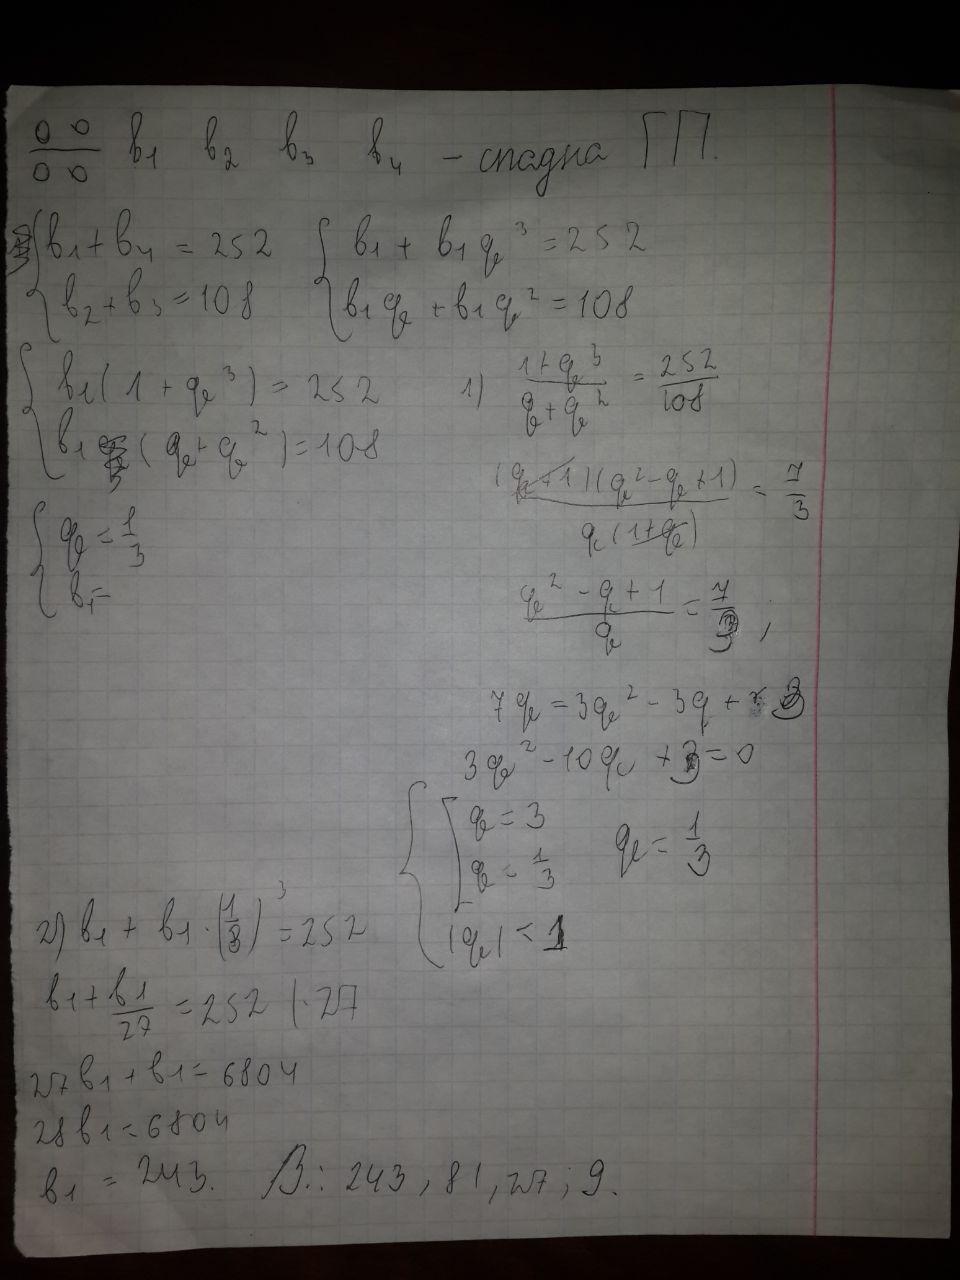 b₁ b₂ b₃ b₄ - спадна ГП.
b₁ + b₄ = 252
b₂ + b₃ = 108
b₁ + b₁q³ = 252
b₁q + b₁q² = 108
b₁(1 + q³) = 252
b₁ (q + q²) = 108
1) (1 + q³)/(q + q²) = 252/108
(q + 1)(q² - q + 1)/q(1 + q) = 7/3
q = 1/3
b₁ =
(q² - q + 1)/q = 7/3,
7q = 3q² - 3q + 3
3q² - 10q + 3 = 0
q = 3
q = 1/3
|q| < 1
q = 1/3
2) b₁ + b₁ · (1/3)³ = 252
b₁ + b₁/27 = 252 | · 27
27b₁ + b₁ = 6804
28b₁ = 6804
b₁ = 243. В.: 243, 81, 27; 9.